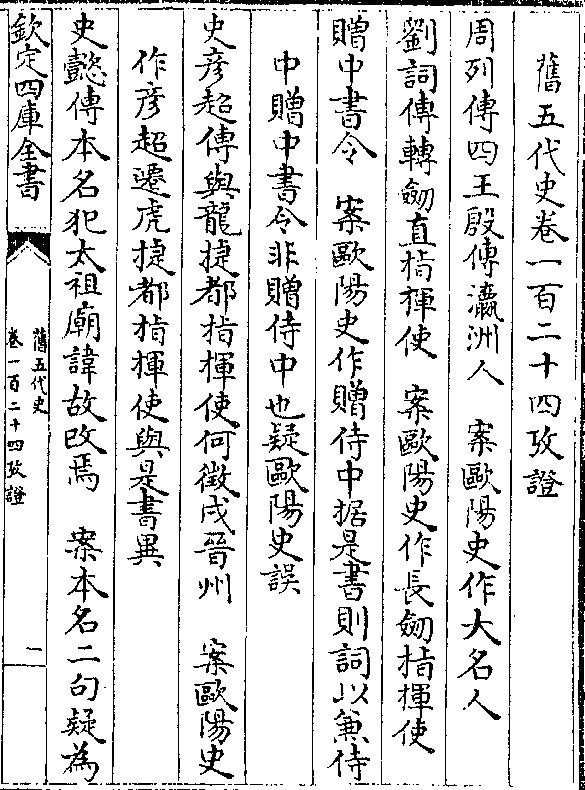 舊五代史卷一百二十四攷證
周列傳四王殷傳瀛洲人　案歐陽史作大名人
劉詞傳轉劒直指揮使　案歐陽史作長劒指揮使
贈中書令　案歐陽史作贈侍中据是書則詞以兼侍
中贈中書令非贈侍中也疑歐陽史誤
史彦超傳與龍捷都指揮使何徵戍晉州　案歐陽史
作彦超遷虎捷都指揮使與是書異
史懿傳本名犯太祖廟諱故改焉　案本名二句疑為
欽定四庫全書
舊五代史
卷一百二十四攷證
一